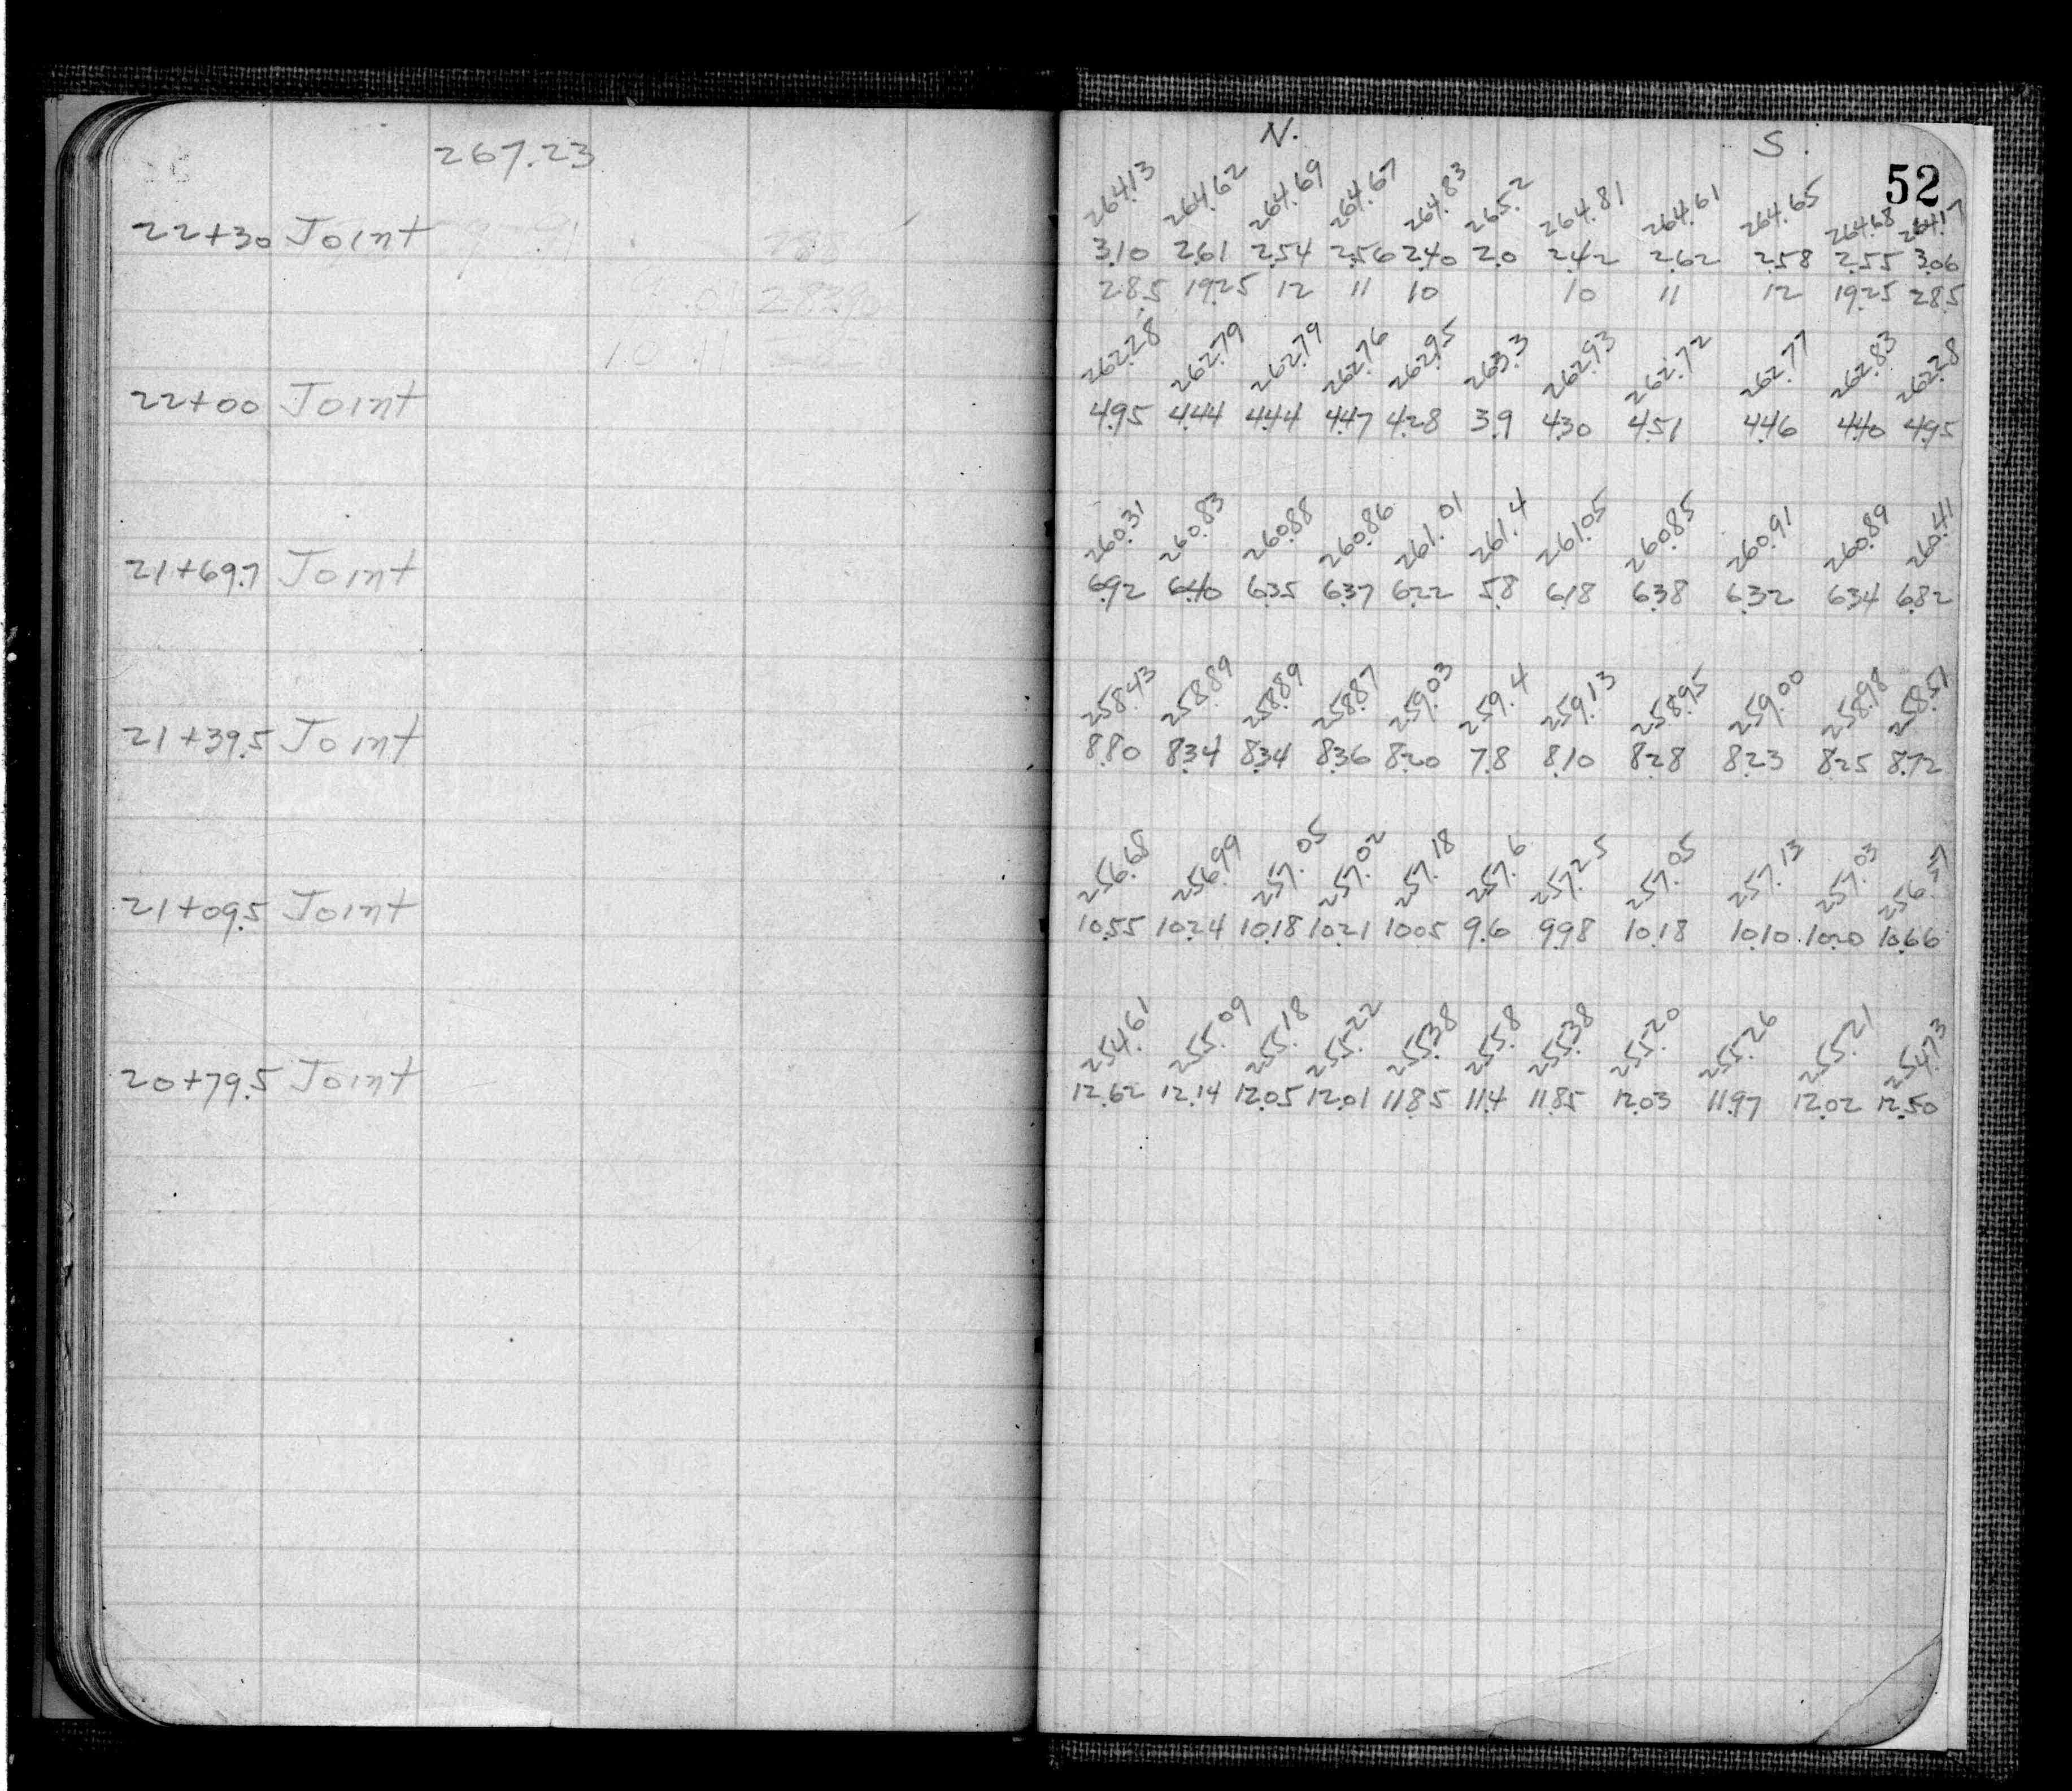 267.23
N. S.
52
264.13 264.62 264.69 264.67 264.83 265.2 264.81 264.61 264.65 264.68 264.17
22+30 Joint 3.10 2.61 2.54 2.56 2.40 2.0 2.42 2.62 2.58 2.55 3.06
28.5 19.25 12 11 10 10 11 12 19.25 28.5
262.28 262.79 262.79 262.76 262.95 263.3 262.93 262.72 262.77 262.83 262.28
22+00 Joint 4.95 4.44 4.44 4.47 4.28 3.9 4.30 4.51 4.46 4.40 4.95
260.31 260.83 260.88 260.86 261.01 261.4 261.05 260.85 260.91 260.89 260.41
21+69.7 Joint 6.92 6.40 6.35 6.37 6.22 5.8 6.18 6.38 6.32 6.34 6.82
258.43 258.89 258.89 258.87 259.03 259.4 259.13 258.95 259.00 258.98 258.51
21+39.5 Joint 8.80 8.34 8.34 8.36 8.20 7.8 8.10 8.28 8.23 8.25 8.72
256.68 256.99 257.05 257.02 257.18 257.6 257.25 257.05 257.13 257.03 256.57
21+09.5 Joint 10.55 10.24 10.18 10.21 10.05 9.6 9.98 10.18 10.10 10.20 10.66
254.61 255.09 255.18 255.22 255.38 255.8 255.38 255.20 255.26 255.21 254.73
20+79.5 Joint 12.62 12.14 12.05 12.01 11.85 11.4 11.85 12.03 11.97 12.02 12.50